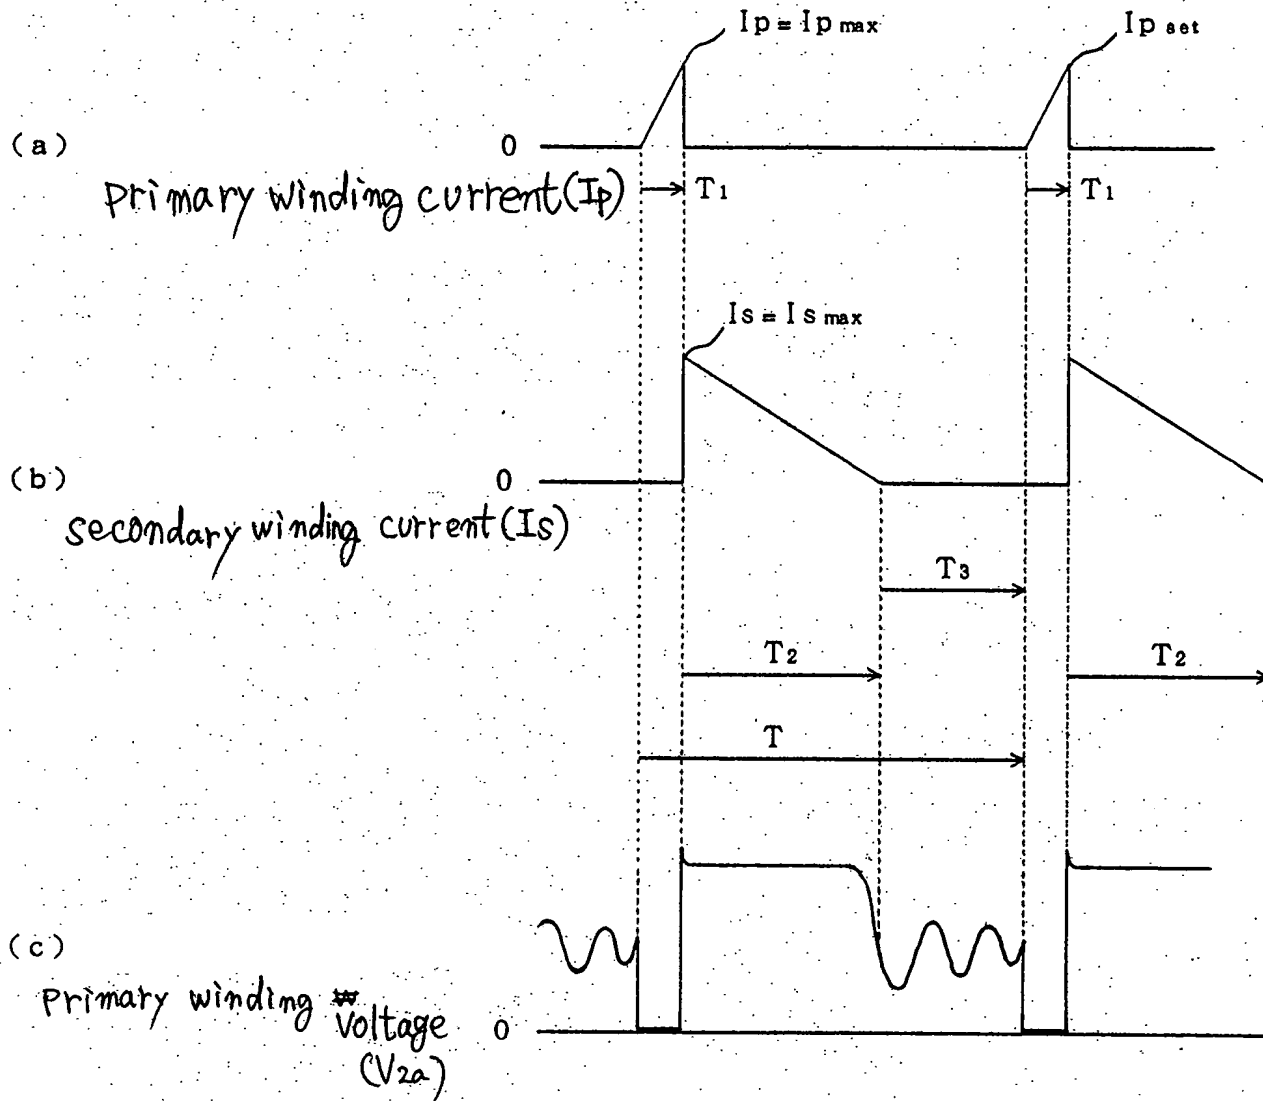 Ip = Ip max
Ip set
(a)
0
primary winding current(Ip)
T1
T1
Is = Is max
(b)
0
secondary winding current(Is)
T3
T2
T2
T
(c)
primary winding
voltage
0
(V2a)